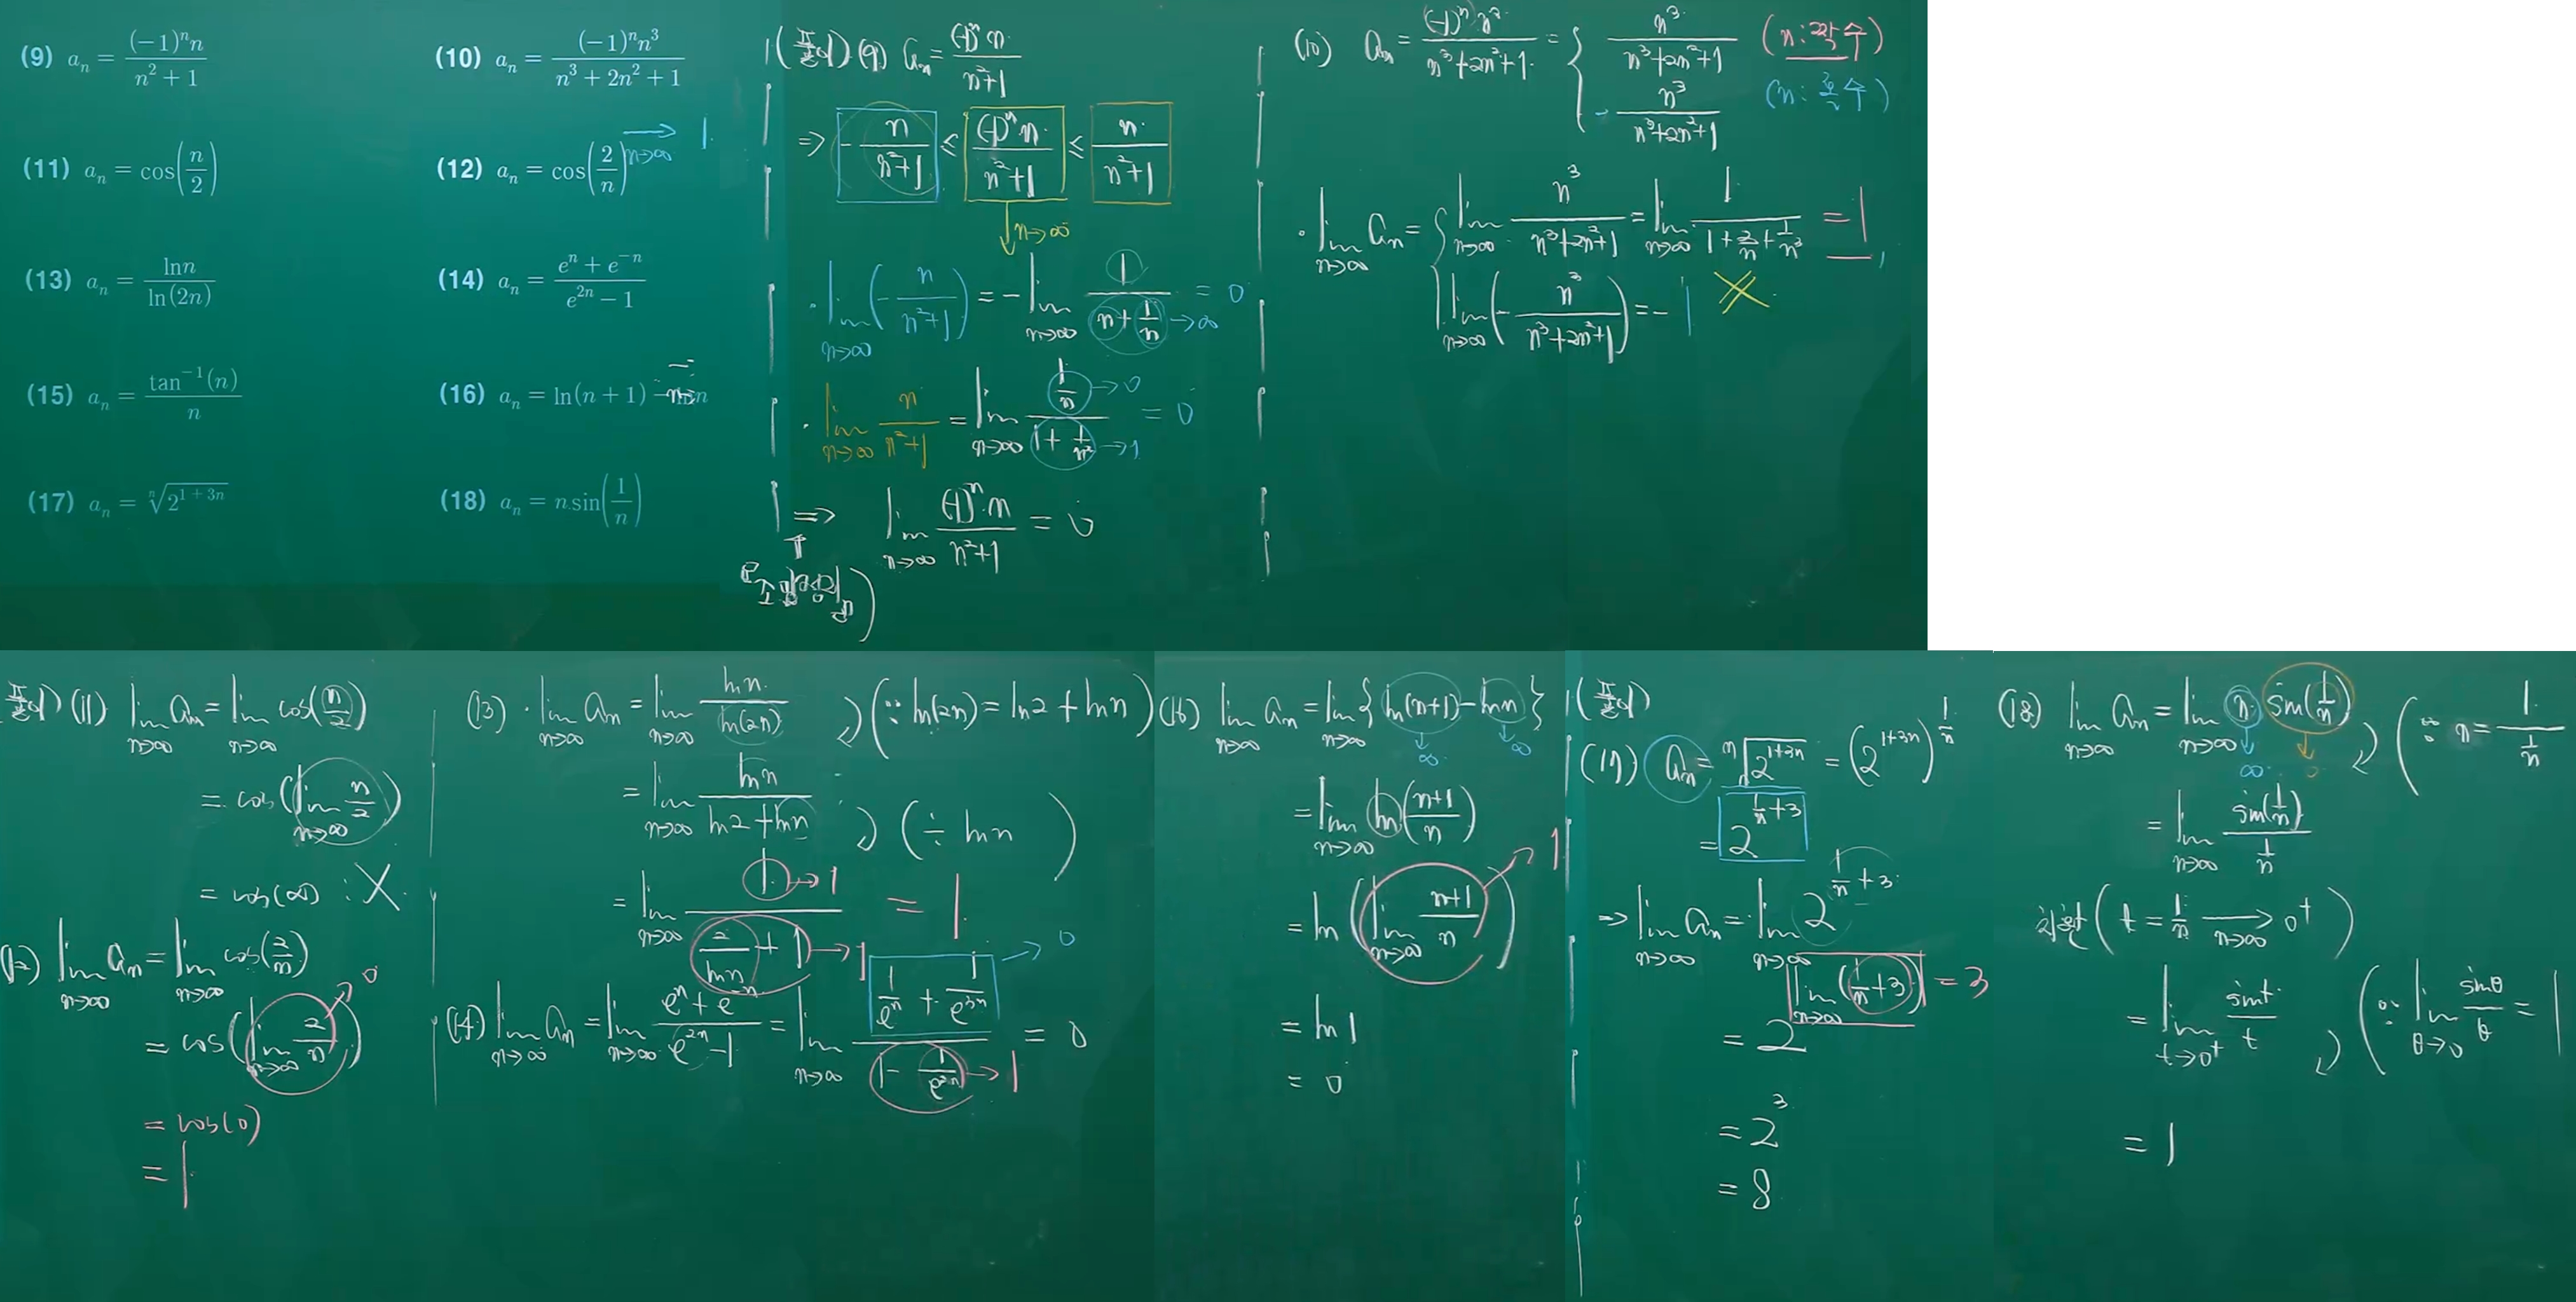 (9) a_n = (-1)^n n / (n^2 + 1)
(10) a_n = (-1)^n n^3 / (n^3 + 2n^2 + 1)
(11) a_n = cos(n/2)
(12) a_n = cos(2/n) →_{n→∞} 1
(13) a_n = ln n / ln(2n)
(14) a_n = (e^n + e^{-n}) / (e^{2n} - 1)
(15) a_n = tan^{-1}(n) / n
(16) a_n = ln(n + 1) - ln n
(17) a_n = ⁿ√(2^{1+3n})
(18) a_n = n sin(1/n)
(풀이) (9) a_n = (-1)^n n / (n^2+1)
⇒ -n/(n^2+1) ≤ (-1)^n n/(n^2+1) ≤ n/(n^2+1)
↓ n→∞
· lim_{n→∞} (-n/(n^2+1)) = -lim_{n→∞} 1/(n + 1/n) = 0
→∞
· lim_{n→∞} n/(n^2+1) = lim_{n→∞} (1/n)/(1 + 1/n^2) = 0
→0
→1
⇒ lim_{n→∞} (-1)^n n/(n^2+1) = 0
(10) a_n = (-1)^n n^3/(n^3+2n^2+1) = { n^3/(n^3+2n^2+1) (n:짝수)
-n^3/(n^3+2n^2+1) (n:홀수)
· lim_{n→∞} a_n = { lim_{n→∞} n^3/(n^3+2n^2+1) = lim_{n→∞} 1/(1 + 2/n + 1/n^3) = 1,
lim_{n→∞} (-n^3/(n^3+2n^2+1)) = -1
풀이) (11) lim_{n→∞} a_n = lim_{n→∞} cos(n/2)
= cos(lim_{n→∞} n/2)
= cos(∞) : X
(12) lim_{n→∞} a_n = lim_{n→∞} cos(2/n)
= cos(lim_{n→∞} 2/n) → 0
= cos(0)
= 1
(13) · lim_{n→∞} a_n = lim_{n→∞} ln n / ln(2n) (∵ ln(2n) = ln2 + ln n)
= lim_{n→∞} ln n / (ln2 + ln n) (÷ ln n)
= lim_{n→∞} 1 / (2/ln n + 1) = 1
→1
→1
(14) lim_{n→∞} a_n = lim_{n→∞} (e^n + e^{-n})/(e^{2n} - 1) = lim_{n→∞} (1/e^n + 1/e^{3n})/(1 - 1/e^{2n}) = 0
→0
→1
(16) lim_{n→∞} a_n = lim_{n→∞} { ln(n+1) - ln n }
↓∞ ↓∞
= lim_{n→∞} ln((n+1)/n)
= ln(lim_{n→∞} (n+1)/n) → 1
= ln 1
= 0
(풀이)
(17) a_n = ⁿ√(2^{1+3n}) = (2^{1+3n})^{1/n}
= 2^{1/n + 3}
⇒ lim_{n→∞} a_n = lim_{n→∞} 2^{1/n + 3}
= 2^{lim_{n→∞} (1/n + 3)} = 3
= 2^3
= 8
(18) lim_{n→∞} a_n = lim_{n→∞} n sin(1/n) (∵ n = 1/(1/n)
↓∞ ↓0
= lim_{n→∞} sin(1/n)/(1/n)
치환 (t = 1/n →_{n→∞} 0^+)
= lim_{t→0^+} sin t / t (∵ lim_{θ→0} sinθ/θ = 1
= 1